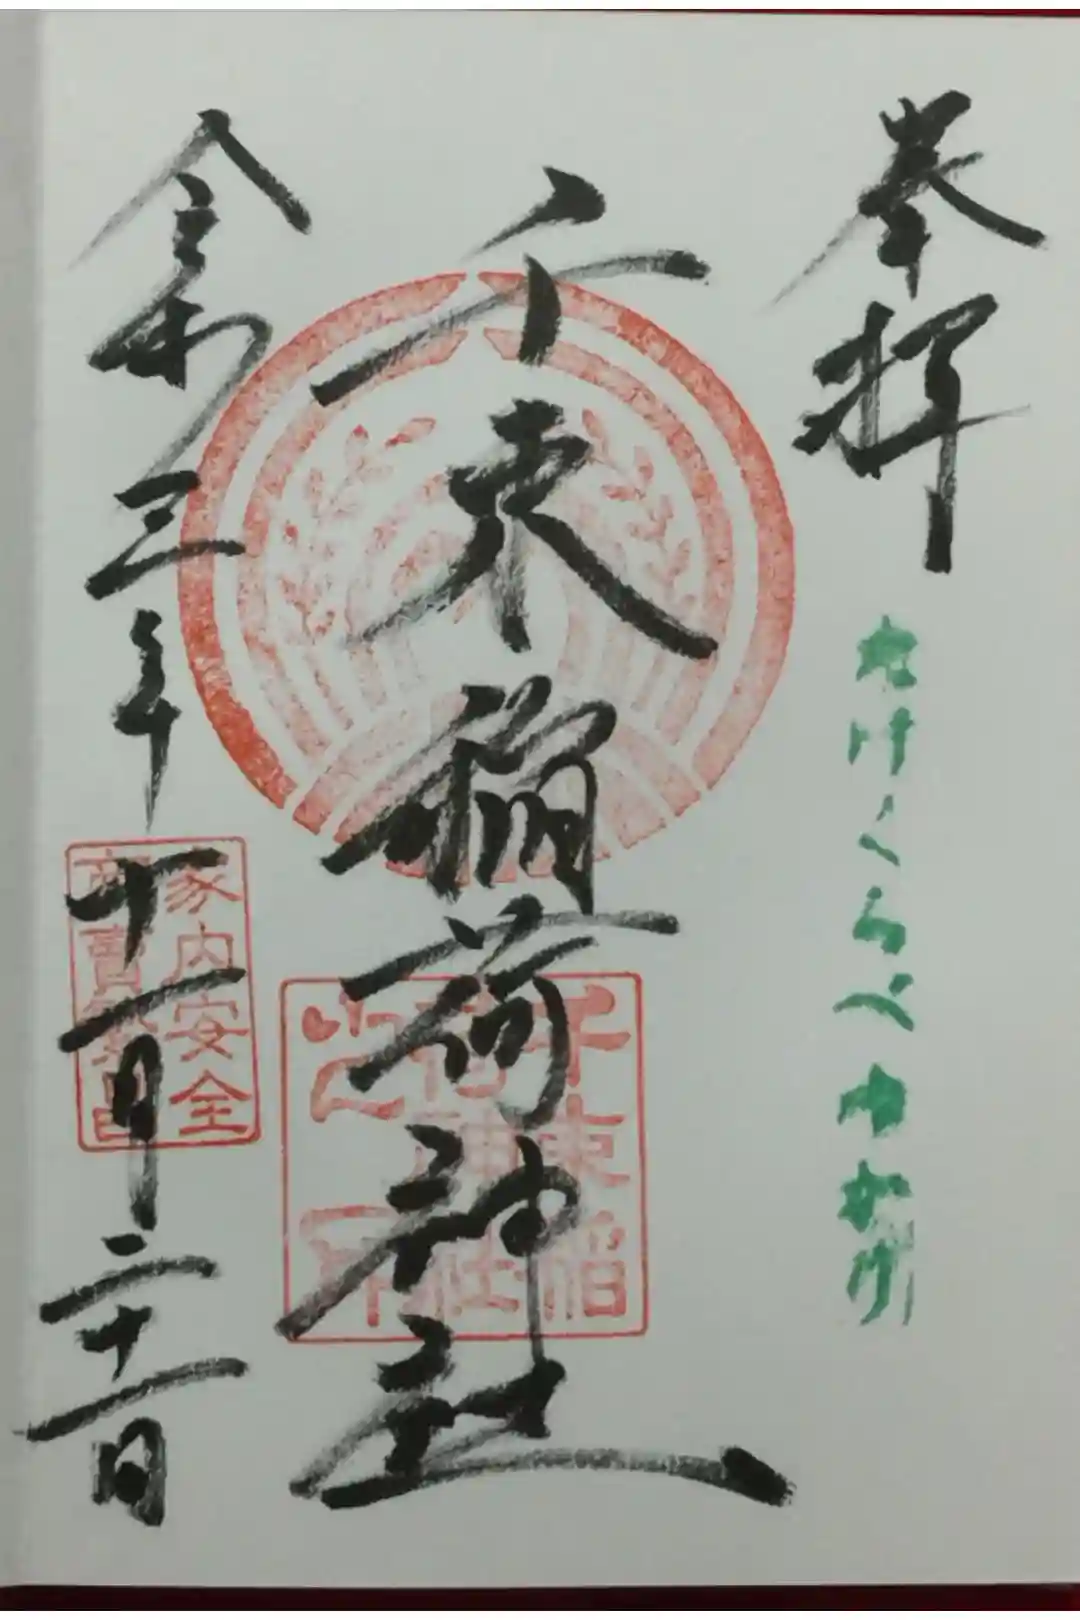 奉拝
たけくらべゆかり
千束稲荷神社
千束稲荷神社之印
令和三年十一月二十一日
家内安全
商賣繁昌